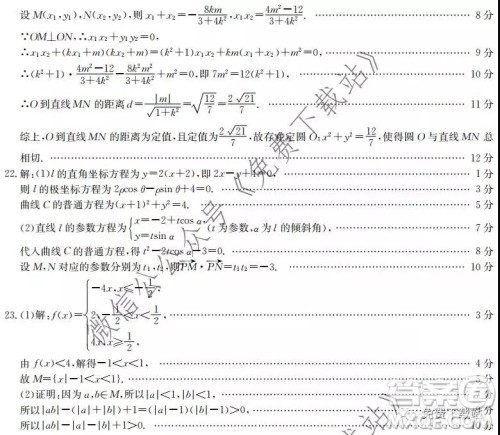 设 M(x₁,y₁),N(x₂,y₂),则 x₁+x₂=-8km/(3+4k²),x₁x₂=(4m²-12)/(3+4k²). 8分
∵OM⊥ON,∴x₁x₂+y₁y₂=0,
∴x₁x₂+(kx₁+m)(kx₂+m)=(k²+1)x₁x₂+km(x₁+x₂)+m²=0, 9分
∴(k²+1)·(4m²-12)/(3+4k²)-8k²m²/(3+4k²)+m²=0,即 7m²=12(k²+1), 10分
∴O 到直线 MN 的距离 d=|m|/√(1+k²)=√(12/7)=2√21/7. 11分
综上,O 到直线 MN 的距离为定值,且定值为 2√21/7,故存在定圆 O:x²+y²=12/7,使得圆 O 与直线 MN 总
相切. 12分
22.解:(1)l 的直角坐标方程为 y=2(x+2),即 2x-y+4=0, 1分
则 l 的极坐标方程为 2ρcos θ-ρsin θ+4=0. 3分
曲线 C 的普通方程为(x+1)²+y²=4. 5分
(2)直线 l 的参数方程为{x=-2+tcos α, y=tsin α (t 为参数,α 为 l 的倾斜角), 7分
代入曲线 C 的普通方程,得 t²-2tcos α-3=0. 8分
设 M,N 对应的参数分别为 t₁,t₂,则PM·PN=t₁t₂=-3. 10分
23.(1)解:f(x)={-4x,x≤-1/2, 2,-1/2<x<1/2, 4x,x≥1/2, 3分
由 f(x)<4,解得-1<x<1, 4分
故 M={x|-1<x<1}. 5分
(2)证明:因为 a,b∈M,所以|a|<1,|b|<1,
所以|ab|-(|a|+|b|)+1=(|a|-1)(|b|-1)>0,
所以|ab|-|a|-|b|+1>0.
微信公众号《免费下载站》
答案圈